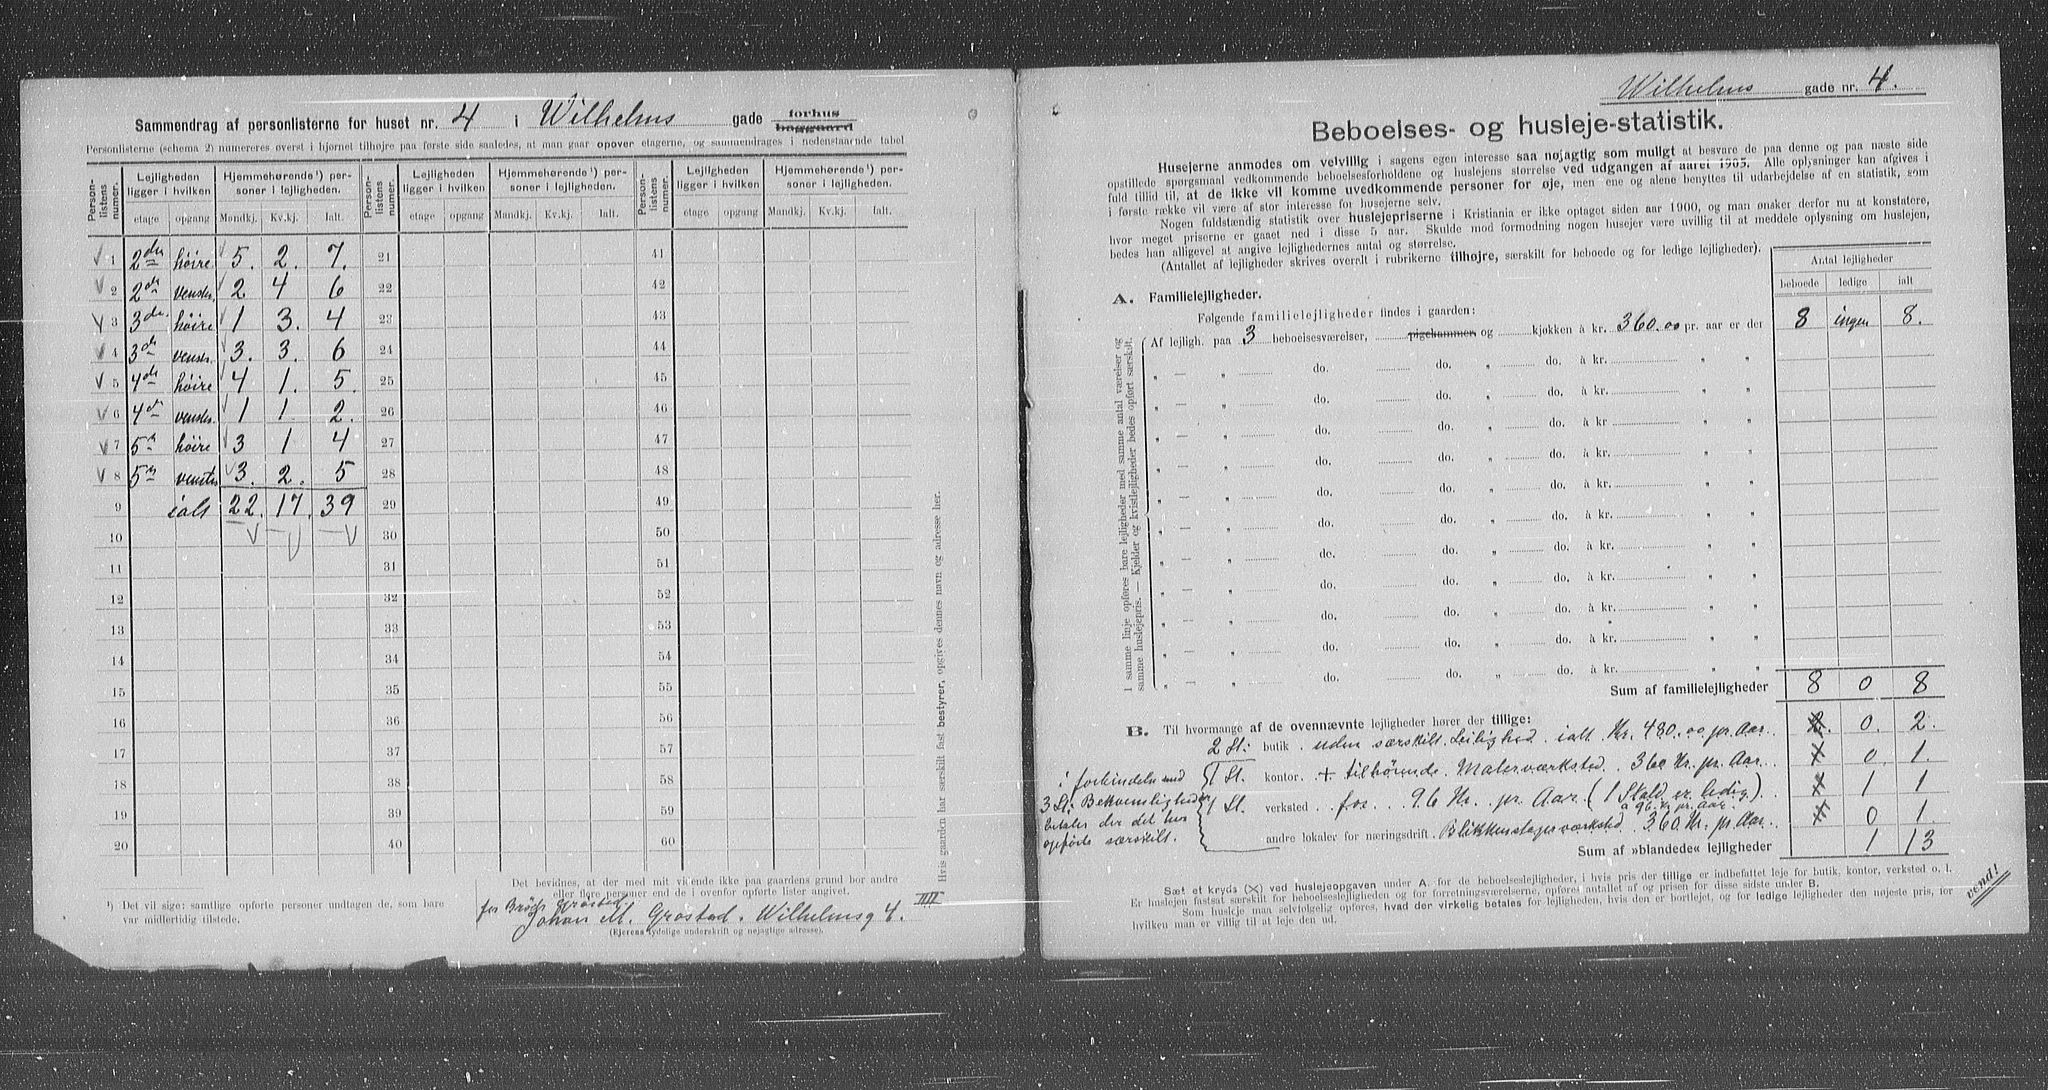 Sammendrag af personlisterne for huset nr. 4 i Wilhelms gade forhus baggaard
Personlisterne (schema 2) numereres øverst i hjørnet tilhøjre paa første side saaledes, at man gaar opover etagerne, og sammendrages i nedenstaaende tabel
Person-listens nummer. Lejligheden ligger i hvilken Hjemmehørende¹) personer i lejligheden. Person-listens nummer. Lejligheden ligger i hvilken Hjemmehørende¹) personer i lejligheden. Person-listens nummer. Lejligheden ligger i hvilken Hjemmehørende¹) personer i lejligheden.
etage opgang Mandkj. Kv.kj. Ialt. etage opgang Mandkj. Kv.kj. Ialt. etage opgang Mandkj. Kv.kj. Ialt.
1 2den høire 5. 2. 7. 21 41
2 2den venstre 2 4 6 22 42
3 3die høire 1 3. 4 23 43
4 3die venstre 3. 3. 6 24 44
5 4de høire 4 1. 5. 25 45
6 4de venstre 1 1. 2. 26 46
7 5te høire 3 1 4 27 47
8 5te venstre 3. 2. 5 28 48
9 ialt 22. 17. 39 29 49
10 30 50
11 31 51
12 32 52
13 33 53
14 34 54
15 35 55
16 36 56
17 37 57
18 38 58
19 39 59
20 40 60
¹) Det vil sige: samtlige opførte personer undtagen de, som bare
var midlertidig tilstede.
Det bevidnes, at der med mit vidende ikke paa gaardens grund bor andre
eller flere personer end de i ovenfor opførte lister angivet.
for Brødr. Grøstad
Johan M. Grøstad. Wilhelmsg 4.
(Ejerens tydelige underskrift og nøjagtige adresse).
Hvis gaarden har særskilt fast bestyrer, opgives dennes navn og adresse her.
Wilhelms gade nr. 4.
Beboelses- og husleje-statistik.
Husejerne anmodes om velvillig i sagens egen interesse saa nøjagtig som muligt at besvare de paa denne og paa næste side
opstillede spørgsmaal vedkommende beboelsesforholdene og huslejens størrelse ved udgangen af aaret 1905. Alle oplysninger kan afgives i
fuld tillid til, at de ikke vil komme uvedkommende personer for øje, men ene og alene benyttes til udarbejdelse af en statistik, som
i første række vil være af stor interesse for husejerne selv.
Nogen fuldstændig statistik over huslejepriserne i Kristiania er ikke optaget siden aar 1900, og man ønsker derfor nu at konstatere,
hvor meget priserne er gaaet ned i disse 5 aar. Skulde mod formodning nogen husejer være uvillig til at meddele oplysning om huslejen,
bedes han alligevel at angive lejlighedernes antal og størrelse.
(Antallet af lejligheder skrives overalt i rubrikerne tilhøjre, særskilt for beboede og for ledige lejligheder).
Antal lejligheder
beboede ledige ialt
A. Familielejligheder.
Følgende familielejligheder findes i gaarden:
Af lejligh. paa 3 beboelsesværelser, pigekammer og kjøkken à kr. 360.00 pr. aar er der 8 ingen 8.
" — " do. do. " do. à kr. " "
" — " do. do. " do. à kr. " "
" — " do. do. " do. à kr. " "
" — " do. do. " do. à kr. " "
" — " do. do. " do. à kr. " "
" — " do. do. " do. à kr. " "
" — " do. do. " do. à kr. " "
" — " do. do. " do. à kr. " "
" — " do. do. " do. à kr. " "
" — " do. do. " do. à kr. " "
" — " do. do. " do. à kr. " "
I samme linje opføres bare lejligheder med samme antal værelser og
samme huslejepris. — Kjelder og kvistlejligheder bedes opført særskilt.
Sum af familielejligheder 8 0 8
B. Til hvormange af de ovennævnte lejligheder hører der tillige:
2 St: butik uden særskilt Leilighed ialt Kr. 480.00 pr. Aar. 0. 2.
1 St. kontor + tilhörende Malerværksted. 360 Kr. pr. Aar. 0 1.
1 St. verksted for 96 Kr. pr. Aar (1 Stald er ledig). 1 1
à 96 Kr. pr. Aar.
andre lokaler for næringsdrift. Blikkenslagerværksted 360 Kr. pr. Aar. 0 1.
i forbindelse med
3 St: Bekvemligheder
betales der det her
opførte særskilt.
Sum af »blandede« lejligheder 1 13
Sæt et kryds (×) ved huslejeopgaven under A. for de beboelseslejligheder, i hvis pris der tillige er indbefattet leje for butik, kontor, verksted o. l.
Er huslejen fastsat særskilt for beboelseslejligheden og for forretningsværelserne, opføres antallet af og prisen for disse sidste under B.
Som husleje maa selvfølgelig opføres, hvad der virkelig betales for lejligheden, hvis den er bortlejet, og for ledige lejligheder den nøjeste pris, for
hvilken man er villig til at leje den ud.
vend!